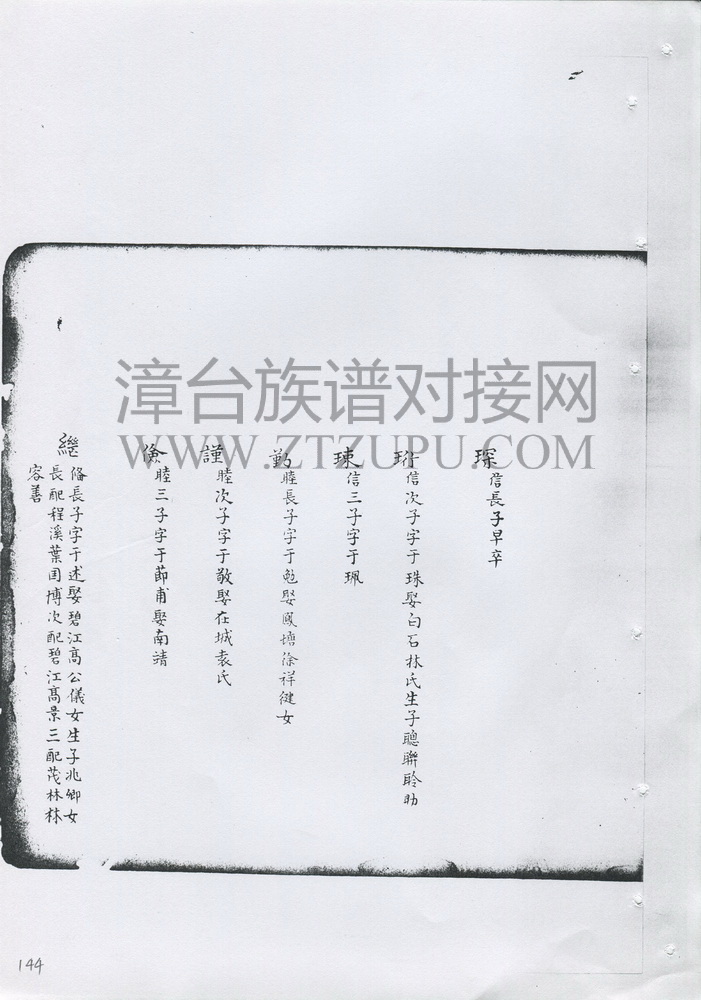 琛 信長子早卒
珩 信次子字于珠娶白石林氏生子聰聯聆助
琜 信三子字于珮
勤 睦長子字于勉娶鳳塘徐祥健女
謹 睦次子字于敬娶在城袁氏
儉 睦三子字于節甫娶南靖
繼 脩長子字于述娶碧江高公儀女生子兆卿女
長配程溪葉国博次配碧江高景三配茂林林
容善
漳台族谱对接网
WWW.ZTZUPU.COM
144